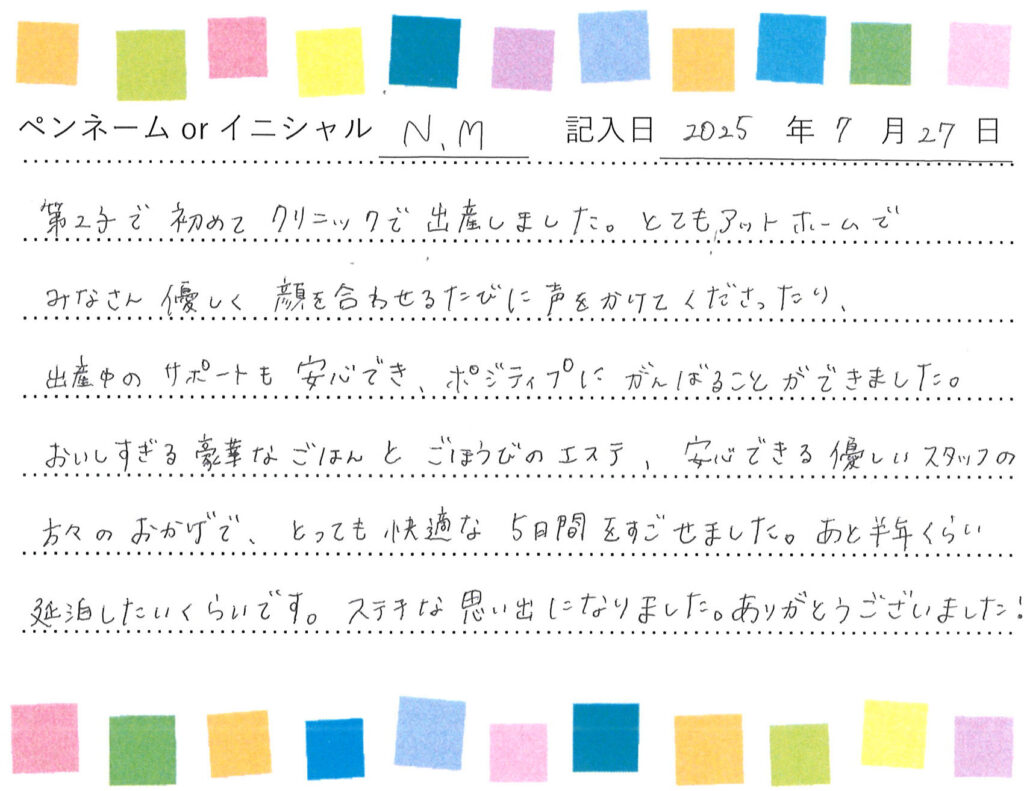 ペンネーム or イニシャル N.M 記入日 2025 年 7 月 27 日
第2子で初めてクリニックで出産しました。とてもアットホームで
みなさん優しく顔を合わせるたびに声をかけてくださったり、
出産中のサポートも安心でき、ポジティブにがんばることができました。
おいしすぎる豪華なごはんとごほうびのエステ、安心できる優しいスタッフの
方々のおかげで、とっても快適な5日間をすごせました。あと半年くらい
延泊したいくらいです。ステキな思い出になりました。ありがとうございました!